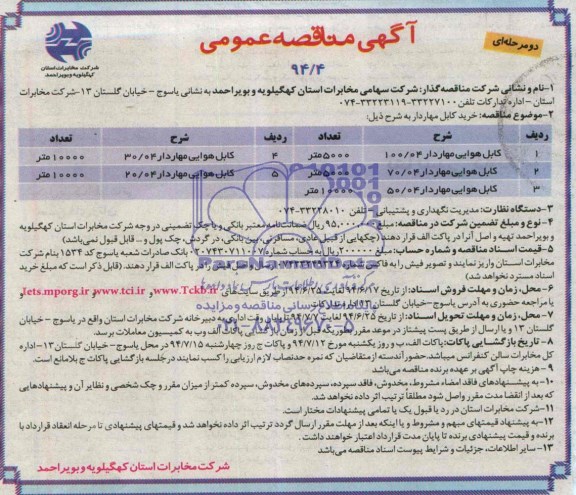 آگهی مناقصه عمومی
دو مرحله‌ای
۹۴/۴
شرکت مخابرات استان
کهگیلویه و بویراحمد
۱-نام و نشانی شرکت مناقصه گذار: شرکت سهامی مخابرات استان کهگیلویه و بویراحمد به نشانی یاسوج - خیابان گلستان ۱۳-شرکت مخابرات
استان - اداره تدارکات تلفن ۳۳۲۲۷۱۰۰-۳۳۲۲۳۱۱۹-۰۷۴
۲-موضوع مناقصه: خرید کابل مهاردار به شرح ذیل:
ردیف شرح تعداد ردیف شرح تعداد
۱ کابل هوایی مهاردار ۱۰۰/۰۴ ۵۰۰۰متر ۴ کابل هوایی مهاردار ۳۰/۰۴ ۱۰۰۰۰ متر
۲ کابل هوایی مهاردار ۷۰/۰۴ ۵۰۰۰متر ۵ کابل هوایی مهاردار ۲۰/۰۴ ۱۰۰۰۰ متر
۳ کابل هوایی مهاردار ۵۰/۰۴ ۱۰۰۰۰ متر
۳-دستگاه نظارت: مدیریت نگهداری و پشتیبانی - تلفن ۳۳۲۲۸۰۱۰-۰۷۴
۴- نوع و مبلغ تضمین شرکت در مناقصه: مبلغ ۹۵,۰۰۰,۰۰۰ ریال ضمانت نامه معتبر بانکی و یا چک تضمینی در وجه شرکت مخابرات استان کهگیلویه
و بویراحمد تهیه و اصل آنرا در پاکت الف قرار دهند (چکهایی از قبیل عادی، مسافرتی، بین بانکی، در گردش، چک پول و... قابل قبول نمی باشد)
۵-قیمت اسناد مناقصه و شماره حساب: مبلغ ۳۰۰,۰۰۰ ریال به حساب شماره ۰۲۰۷۴۳۰۷۱۱۰۰۷ بانک صادرات شعبه یاسوج کد ۱۵۳۴ بنام شرکت
مخابرات استان واریز نمایند و تصویر فیش را به فاکس شماره ارسال و اصل فیش را در پاکت الف قرار دهند. (قابل ذکر است که مبلغ خرید
اسناد مسترد نخواهد شد)
۶-محل، زمان و مهلت فروش اسناد: از تاریخ ۹۴/۶/۱۷ لغایت ۹۴/۶/۲۵ از طریق سایت های www.Tckb.ir و www.tci.ir و Iets.mporg.ir و
یا مراجعه حضوری به آدرس یاسوج-خیابان گلستان ۱۳ اداره تدارکات
۷-محل، زمان و مهلت تحویل اسناد: از تاریخ ۹۴/۶/۲۵ لغایت ۹۴/۷/۷ تا پایان وقت اداری به دبیرخانه شرکت مخابرات استان واقع در یاسوج - خیابان
گلستان ۱۳ و یا ارسال از طریق پست پیشتاز در موعد مقرر بطوریکه قبل از زمان باز گشایی پاکات الف و ب به کمیسیون معاملات برسد.
۸-تاریخ بازگشایی پاکات: پاکات الف، ب و روز یکشنبه مورخ ۹۴/۷/۱۲ و پاکات ج روز چهارشنبه ۹۴/۷/۱۵ در محل یاسوج - خیابان گلستان ۱۳-اداره
کل مخابرات سالن کنفرانس میباشد. حضور آندسته از متقاضیان که نمره حدنصاب لازم ارزیابی را کسب نمایند در جلسه بازگشایی پاکات ج بلامانع است.
۹- هزینه چاپ آگهی بر عهده برنده مناقصه می باشد
۱۰-به پیشنهادهای فاقد امضاء مشروط، مخدوش، فاقد سپرده، سپرده های مخدوش، سپرده کمتر از میزان مقرر و چک شخصی و نظایر آن و پیشنهادهایی
که بعد از انقضا مدت مقرر واصل شود مطلقاً ترتیب اثر داده نخواهد شد.
۱۱-شرکت مخابرات استان در رد یا قبول یک یا تمامی پیشنهادات مختار است.
۱۲-به پیشنهاد قیمتهای مبهم و مشروط و یا اینکه بعد از مهلت مقرر ارسال گردد ترتیب اثر داده نخواهد شد و قیمتهای پیشنهادی تا مرحله انعقاد قرارداد با
برنده و قیمت پیشنهادی برنده تا پایان مدت قرارداد اعتبار خواهند داشت.
۱۳-سایر اطلاعات، جزئیات و شرایط پیوست اسناد مناقصه می باشد
شرکت مخابرات استان کهگیلویه و بویراحمد
ParsNamadData
پایگاه اطلاع رسانی مناقصه و مزایده
۰۲۱-۸۸۳۴۹۶۷۰-۵